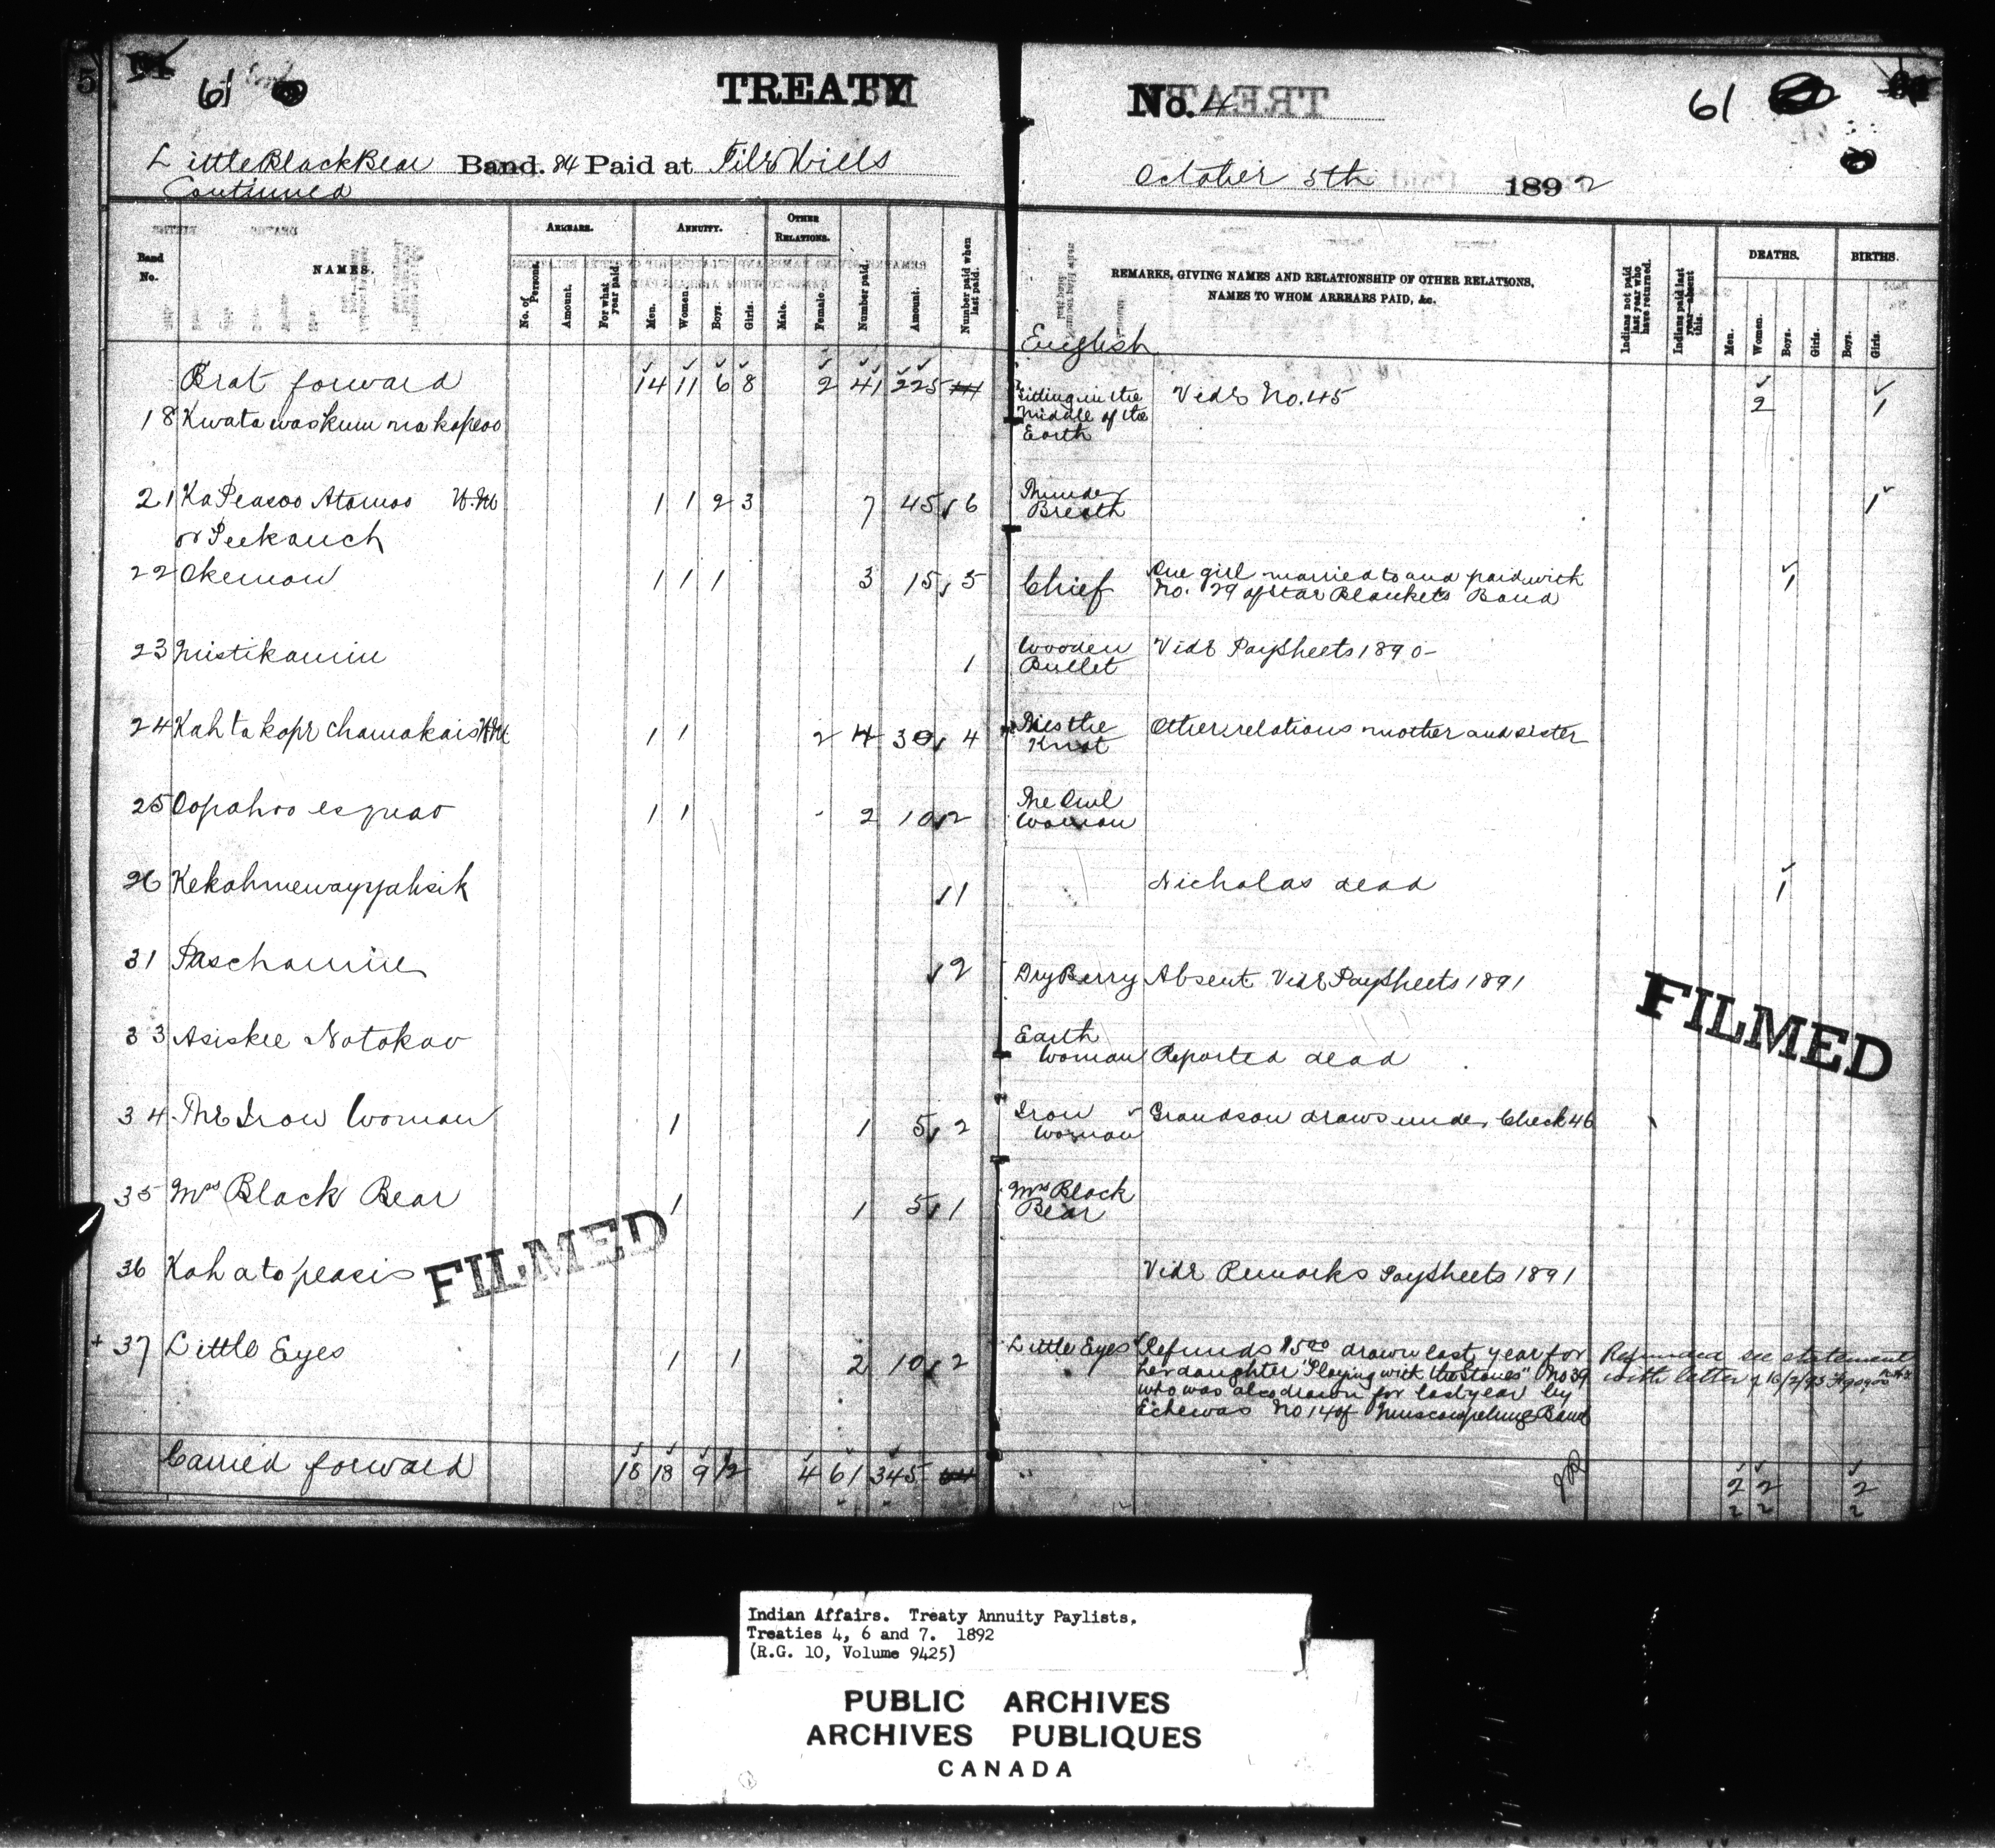 61
TREATY No. 4
61
Little Black Bear Band. 84 Paid at File Hills
October 5th 1892
Continued
Band No.
NAMES.
ARREARS.
No. of Persons.
Amount.
For what year paid.
ANNUITY.
Men.
Women.
Boys.
Girls.
OTHER RELATIONS.
Male.
Female.
Number paid.
Amount.
Number paid when last paid.
REMARKS, GIVING NAMES AND RELATIONSHIP OF OTHER RELATIONS,
NAMES TO WHOM ARREARS PAID, &c.
Indians not paid last year who have returned.
Indians paid last year—absent this.
DEATHS.
Men.
Women.
Boys.
Girls.
BIRTHS.
Boys.
Girls.
English
Brat forward 14 11 6 8 2 41 225 2 1
18 Kwatawaskum na kapeoo Sitting in the Middle of the Earth Vide No. 45
21 Ka Peasoo Atamoo 1 1 2 3 7 45 6 Thunder Breath 1
or Peekauch
22 Okemow 1 1 1 3 15 5 Chief One girl married to and paid with
No. 29 of Star Blankets Band 1
23 Mistikamin 1 Wooden Bullet Vide PaySheets 1890-
24 Kah ta kope chamakais 1 1 2 4 30 4 Ties the Knot Other relations mother and sister
25 Oopahoo esqueo 1 1 2 10 2 The Owl Woman
26 Kekahmewayyahsik 1 Nicholas dead 1
31 Paschamin 2 Dry Berry Absent Vide PaySheets 1891
33 Asiskee Notokao Earth Woman Reported dead
34 The Iron Woman 1 1 5 2 Iron Woman Grandson draws under Check 46
35 Mrs Black Bear 1 1 5 1 Mrs Black Bear
36 Kah a to peasis Vide Remarks PaySheets 1891
+ 37 Little Eyes 1 1 2 10 2 Little Eyes Refunds $5.00 drawn last year for
her daughter "Playing with the Stones" No 39
who was also drawn for last year by
Echewas No 14 of Muscowpetung Band
Refunded see statement
with letter of 16/2/93
Carried forward 18 18 9 12 4 61 345 2 2 2
2 2 2
FILMED
FILMED
Indian Affairs. Treaty Annuity Paylists.
Treaties 4, 6 and 7. 1892
(R.G. 10, Volume 9425)
PUBLIC ARCHIVES
ARCHIVES PUBLIQUES
CANADA